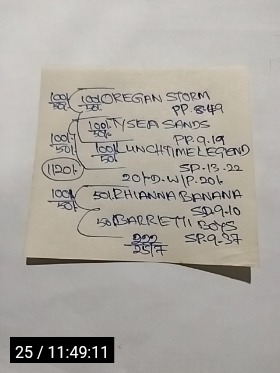 100/- 50/- 100/- 50/- OREGAN STORM
PP. 8.49
100/- 50/- TYSEA SANDS
PP. 9.19
100/- 50/- 100/- 50/- LUNCHTIME LEGEND
SP. 13.22
1120/-
20/- D.W/P. 20/-
100/- 50/- 50/- RHIANNA BANANA
SP. 9.10
50/- BARRETTI BOYS
SP. 9.37
222
25/7
25 / 11:49:11